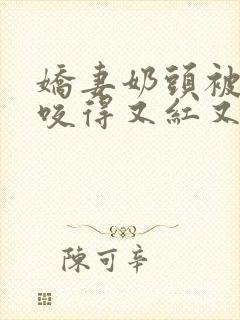 嬌妻奶頭被
咬得又紅又
陳可辛